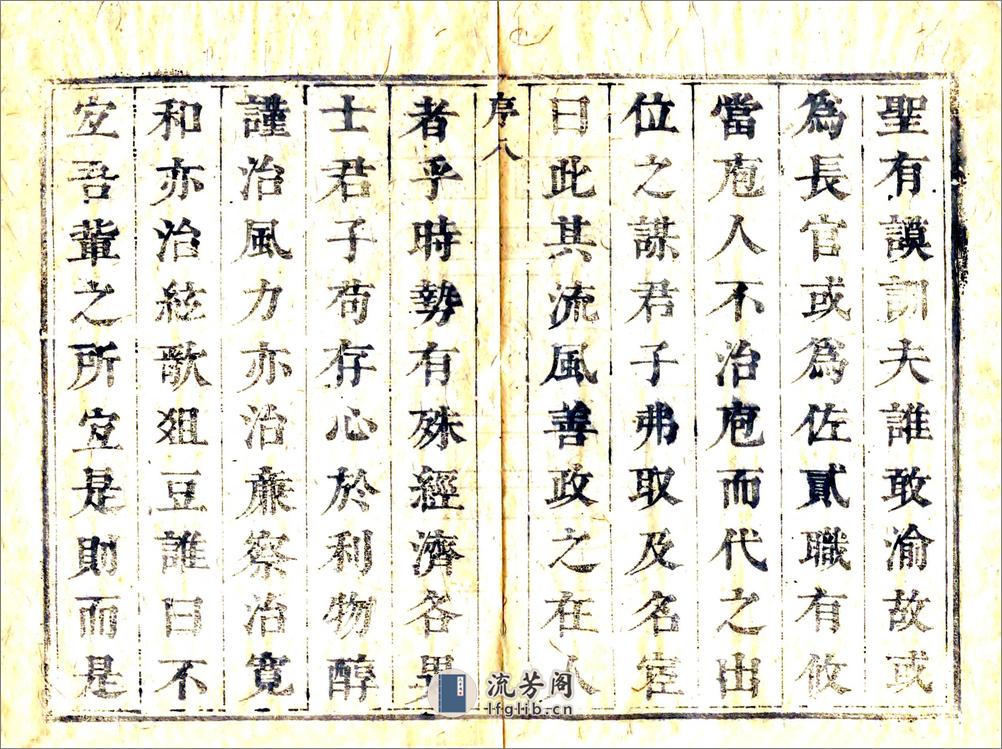 聖有謨訓夫誰敢渝故或
為長官或為佐貳職有攸
當庖人不治庖而代之出
位之謀君子弗取及名宦
曰此其流風善政之在人
序八
者乎時勢有殊經濟各異
士君子苟存心於利物醇
謹治風力亦治廉察治寬
和亦治絃歌俎豆誰曰不
宜吾輩之所宜是則而是
流芳阁
lfglib.cn